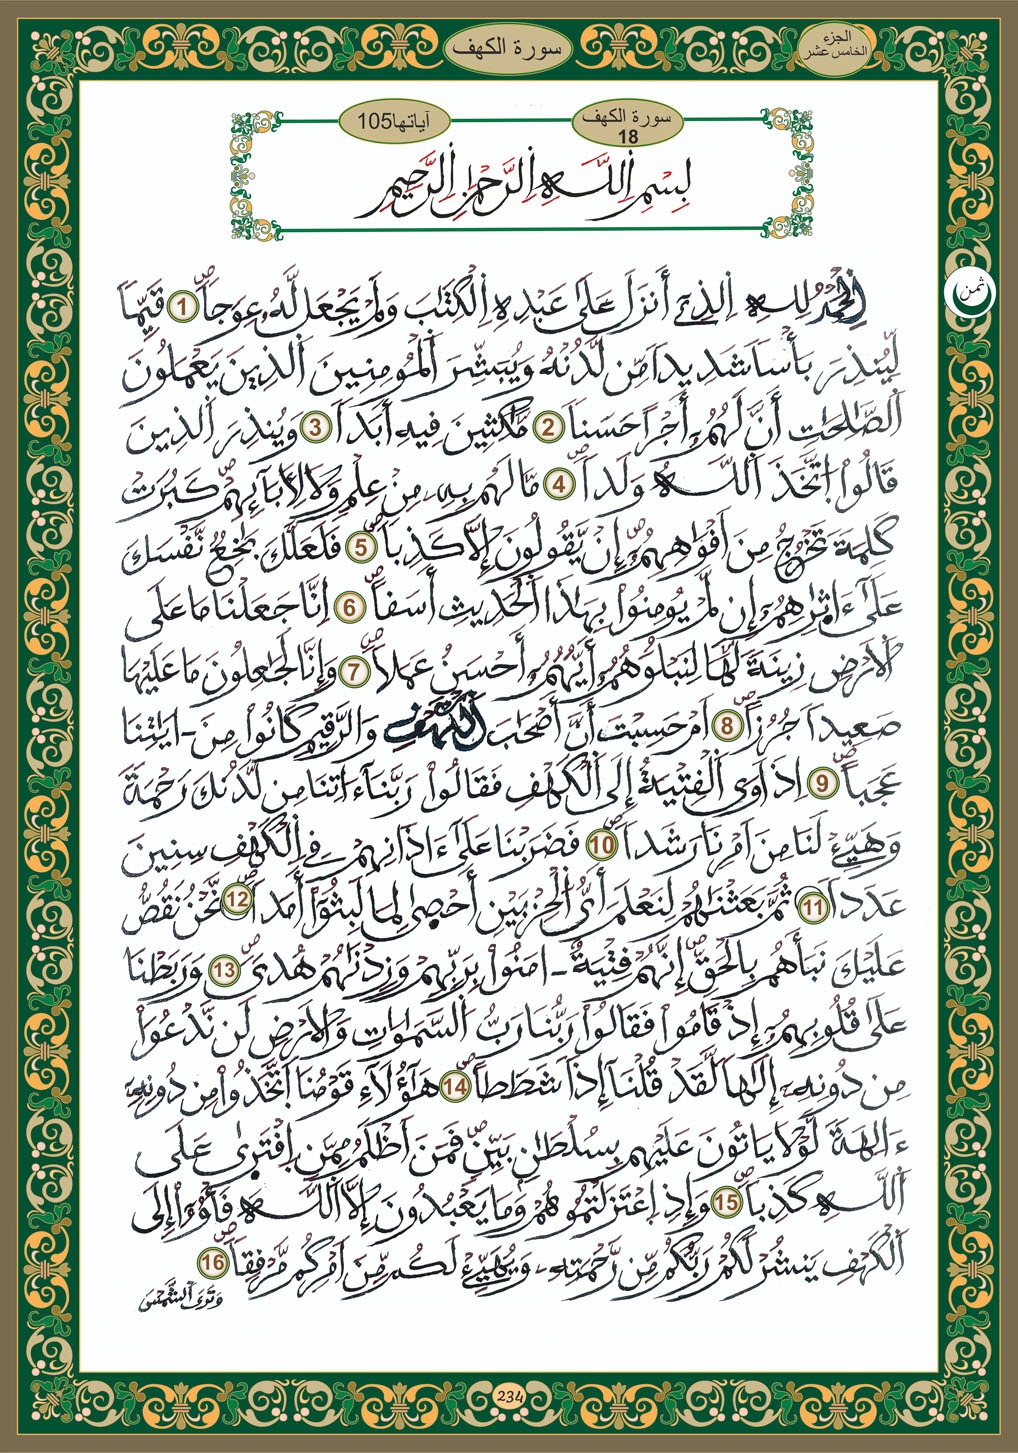 سورة الكهف
الجزء
الخامس عشر
سورة الكهف
18
آياتها105
ثمن
بِسْمِ اِللَّهِ اِلرَّحْمَٰنِ اِلرَّحِيمِ
اِلْحَمْدُ لِلهِ اِلذِےٓ أَنزَلَ عَلَىٰ عَبْدِهِ اِلْكِتَٰبَ وَلَمْ يَجْعَل لَّهُۥ عِوَجاٗ 1 قَيِّماٗ
لِّيُنذِرَ بَأْساٗ شَدِيداٗ مِّن لَّدُنْهُ وَيُبَشِّرَ اَلْمُومِنِينَ اَلذِينَ يَعْمَلُونَ
اَلصَّٰلِحَٰتِ أَنَّ لَهُمُۥٓ أَجْراً حَسَناٗ 2 مَّٰكِثِينَ فِيهِ أَبَداٗ 3 وَيُنذِرَ اَلذِينَ
قَالُواْ اُتَّخَذَ اَللَّهُ وَلَداٗ 4 مَّا لَهُم بِهِۦ مِنْ عِلْمٖ وَلَا لِأٓبَآئِهِمْ كَبُرَتْ
كَلِمَةٗ تَخْرُجُ مِنَ اَفْوَٰهِهِمُۥٓ إِنْ يَّقُولُونَ إِلَّا كَذِباٗ 5 فَلَعَلَّكَ بَٰخِعٞ نَّفْسَكَ
عَلَىٰٓ ءَاثٰ۪رِهِمُۥٓ إِن لَّمْ يُومِنُواْ بِهَٰذَا اَلْحَدِيثِ أَسَفاً 6 اِنَّا جَعَلْنَا مَا عَلَى
اَلَارْضِ زِينَةٗ لَّهَا لِنَبْلُوَهُمُۥٓ أَيُّهُمُۥٓ أَحْسَنُ عَمَلاٗ 7 وَإِنَّا لَجَٰعِلُونَ مَا عَلَيْهَا
صَعِيداٗ جُرُزاً 8 اَمْ حَسِبْتَ أَنَّ أَصْحَٰبَ اَلْكَهْفِ وَالرَّقِيمِ كَانُواْ مِنَ ـ اٰيَٰتِنَا
عَجَباً 9 اِذَ اَوَى اَلْفِتْيَةُ إِلَى اَلْكَهْفِ فَقَالُواْ رَبَّنَآ ءَاتِنَا مِن لَّدُنكَ رَحْمَةٗ
وَهَيِّۓْ لَنَا مِنَ اَمْرِنَا رَشَداٗ 10 فَضَرَبْنَا عَلَىٰٓ ءَاذَانِهِمْ فِے اِلْكَهْفِ سِنِينَ
عَدَداٗ 11 ثُمَّ بَعَثْنَٰهُمْ لِنَعْلَمَ أَيُّ اُلْحِزْبَيْنِ أَحْصَىٰ لِمَا لَبِثُوٓاْ أَمَداٗ 12 نَّحْنُ نَقُصُّ
عَلَيْكَ نَبَأَهُم بِالْحَقِّ إِنَّهُمْ فِتْيَةٌ ـ اٰمَنُواْ بِرَبِّهِمْ وَزِدْنَٰهُمْ هُدىٗ 13 وَرَبَطْنَا
عَلَىٰ قُلُوبِهِمُۥٓ إِذْ قَامُواْ فَقَالُواْ رَبُّنَا رَبُّ اُلسَّمَٰوَٰتِ وَالَارْضِ لَن نَّدْعُوَاْ
مِن دُونِهِۦٓ إِلَٰهاٗ لَّقَدْ قُلْنَآ إِذاٗ شَطَطاً 14 هَٰٓؤُلَآءِ قَوْمُنَا اَتَّخَذُواْ مِن دُونِهِۦٓ
ءَالِهَةٗ لَّوْلَا يَاتُونَ عَلَيْهِم بِسُلْطَٰنِۢ بَيِّنٖ فَمَنَ اَظْلَمُ مِمَّنِ اِفْتَر۪ىٰ عَلَى
اَللَّهِ كَذِباٗ 15 وَإِذِ اِعْتَزَلْتُمُوهُمْ وَمَا يَعْبُدُونَ إِلَّا اَللَّهَ فَأْوُۥٓاْ إِلَى
اَلْكَهْفِ يَنشُرْ لَكُمْ رَبُّكُم مِّن رَّحْمَتِهِۦ وَيُهَيِّۓْ لَكُم مِّنَ اَمْرِكُم مَّرْفِقاٗ 16
وَتَرَى اَلشَّمْسَ
234